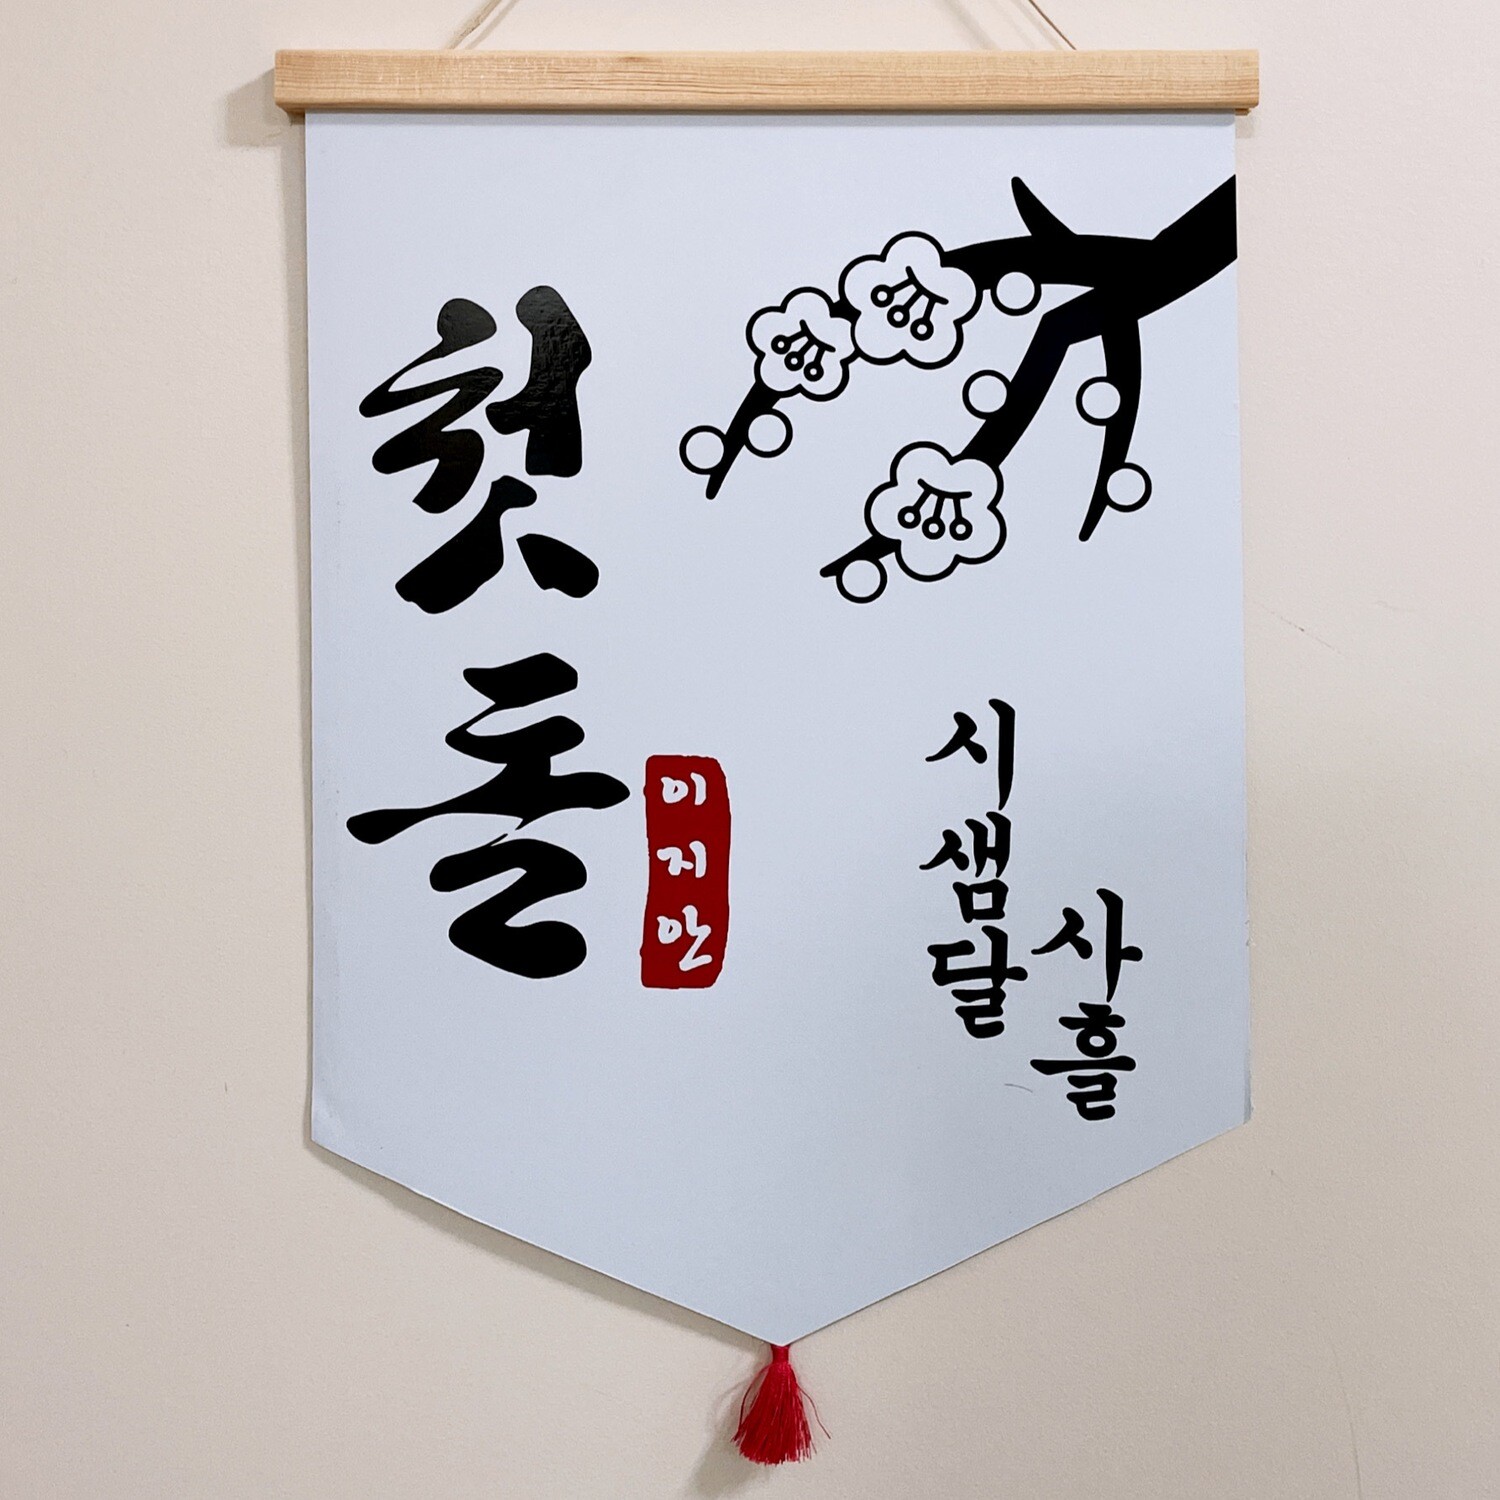 첫돌
이지안
시샘달
사흘